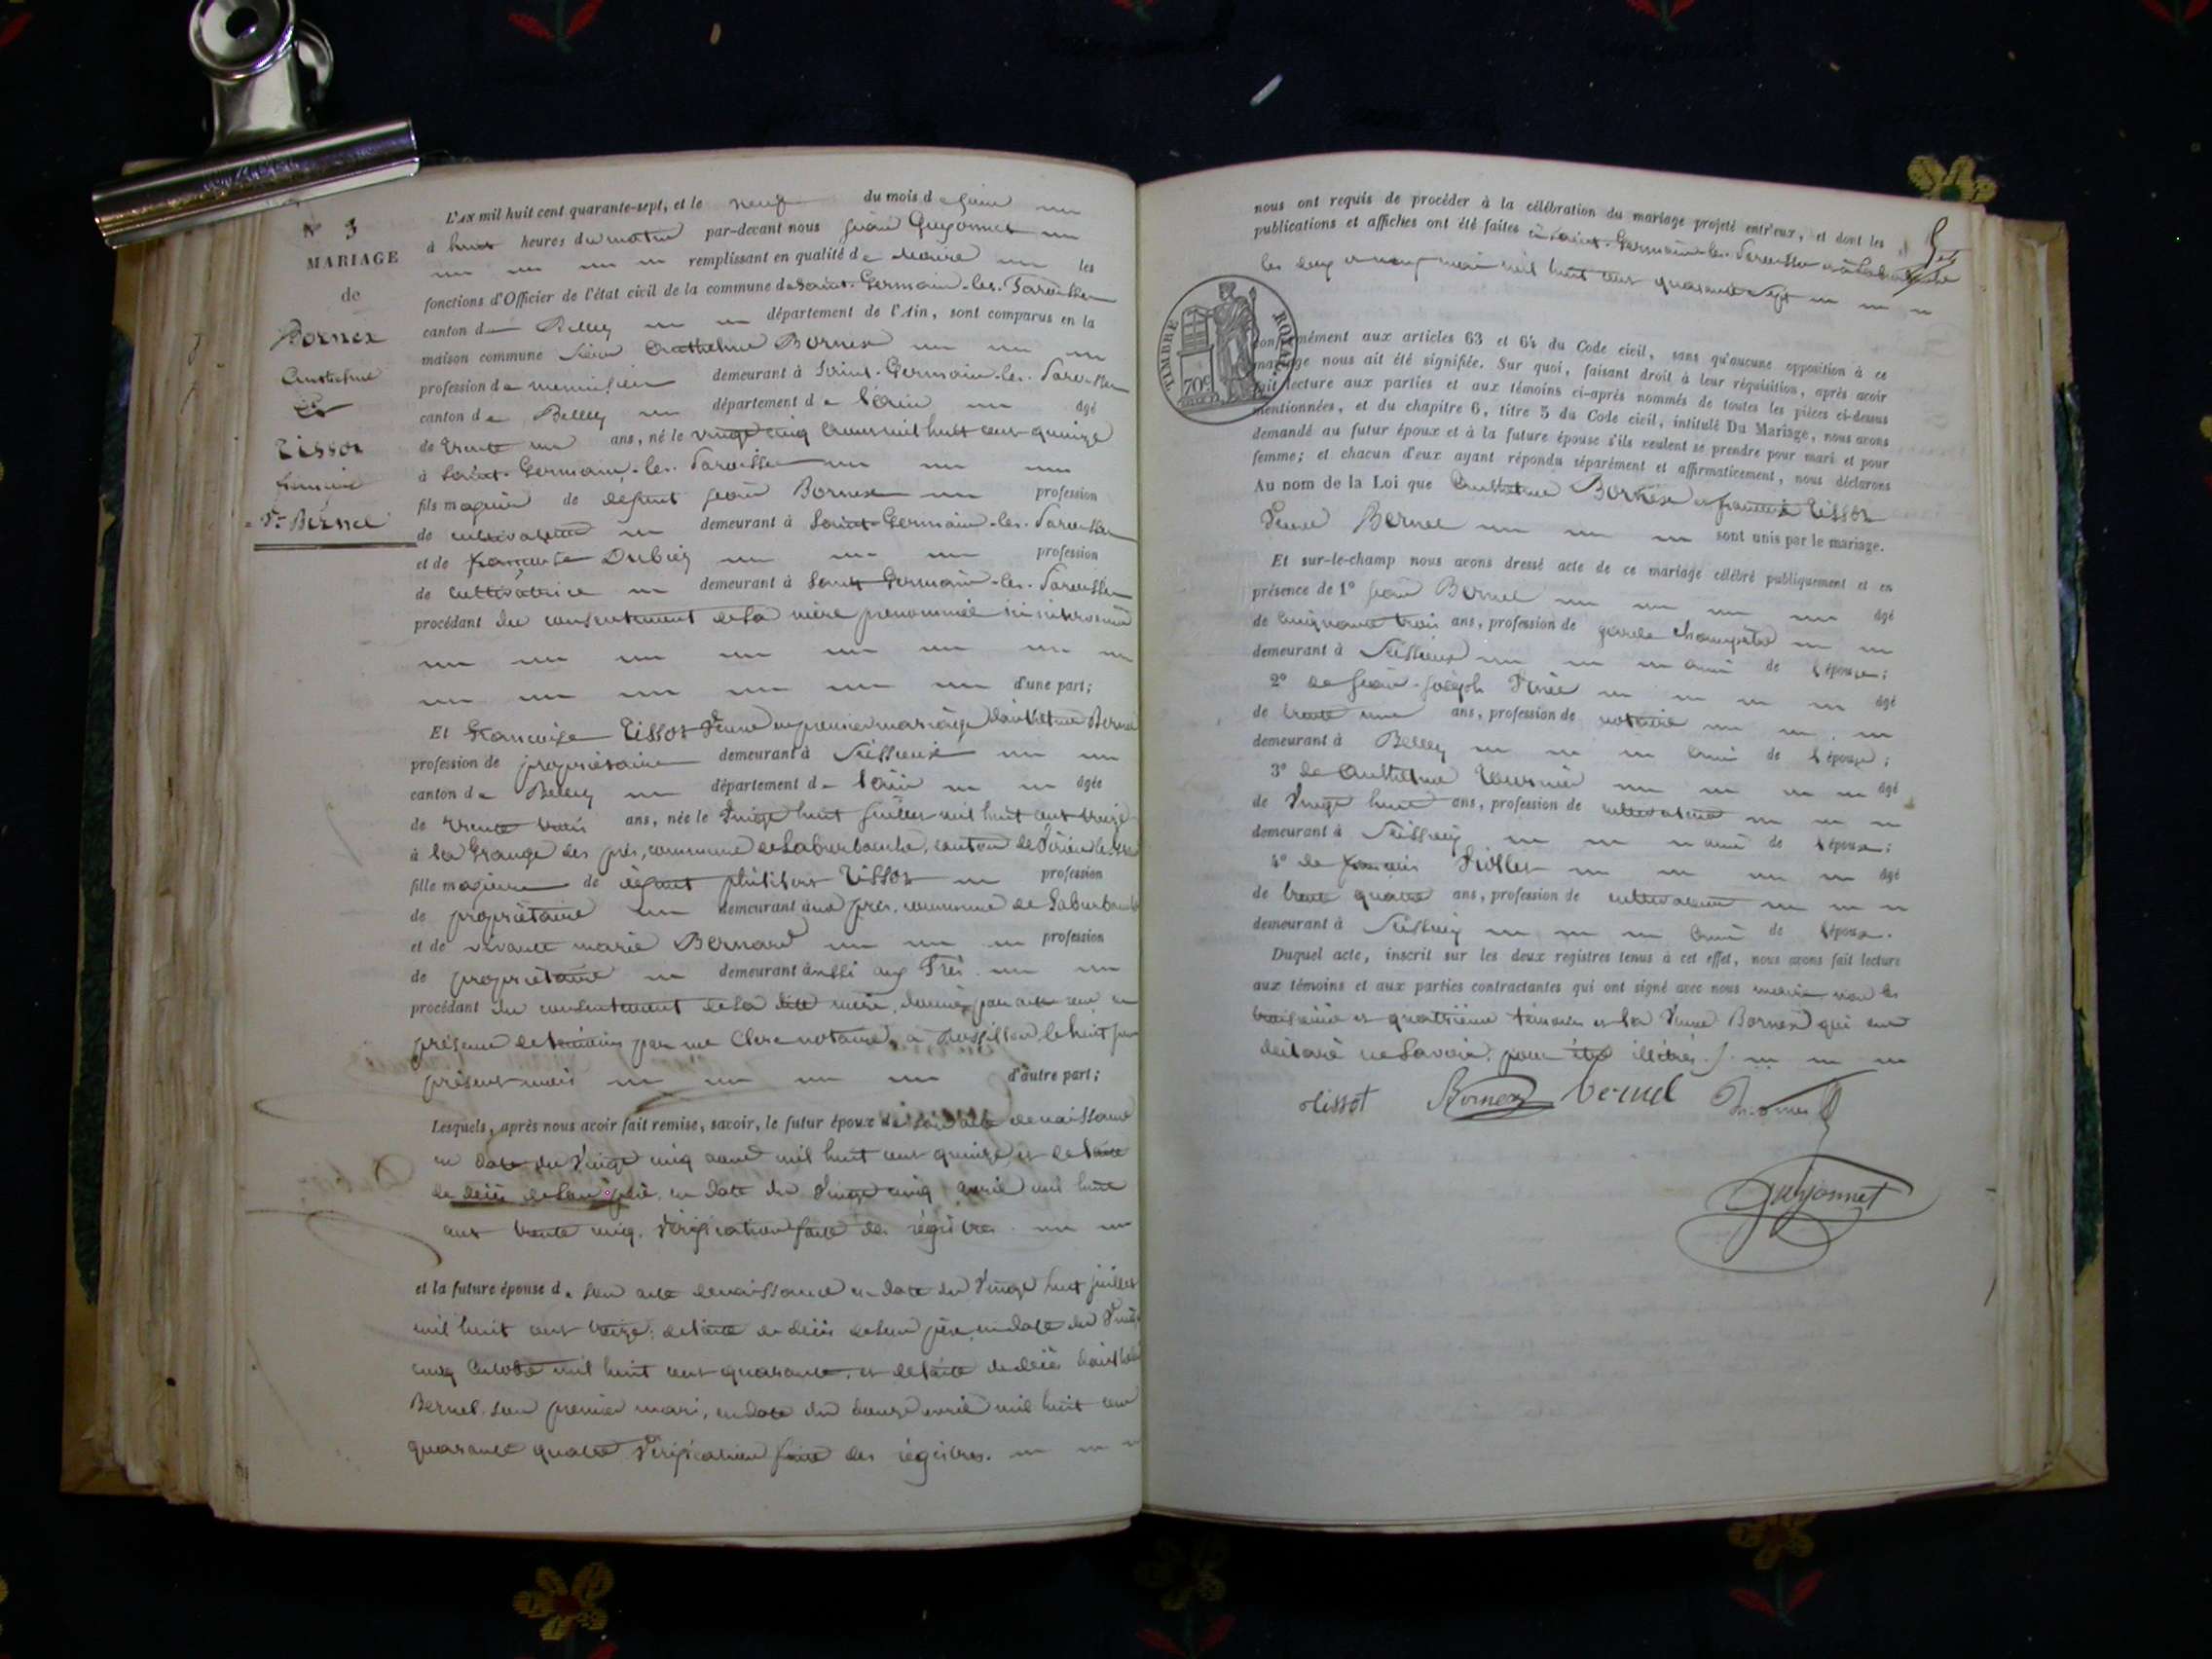 N° 3
MARIAGE
de
Bornex
Anthelme
Et
Tissot
françoise
Ve Bernel
L'AN mil huit cent quarante-sept, et le neuf du mois de juin
à huit heures du matin par-devant nous jean Guyonnet
remplissant en qualité de Maire les
fonctions d'Officier de l'état civil de la commune de Saint-Germain-les-Paroisses
canton de Belley département de l'Ain, sont comparus en la
maison commune Sieur Anthelme Bornex
profession de menuisier demeurant à Saint-Germain-les-Paroisses
canton de Belley département de l'ain âgé
de trente un ans, né le vingt cinq août mil huit cent quinze
à Saint-Germain-les-Paroisses
fils majeur de défunt jean Bornex profession
de cultivateur demeurant à Saint-Germain-les-Paroisses
et de françoise Dubiez profession
de cultivatrice demeurant à Saint-Germain-les-Paroisses
procédant du consentement de sa mère prénommée ici intervenue
d'une part;
Et Françoise Tissot Veuve en premier mariage d'anthelme Bernel
profession de propriétaire demeurant à Seissieux
canton de Belley département de l'ain âgée
de trente trois ans, née le vingt huit juillet mil huit cent treize
à la Grange des prés, commune de Laburbanche, canton de Virieu le
fille majeure de défunt Tissot profession
de propriétaire demeurant aux prés, commune de Laburbanche
et de vivante marie Bernard profession
de propriétaire demeurant aussi aux Prés
procédant du consentement de sa dite mère, donné par acte reçu en
présence de témoins par me Clerc notaire, a Rossillon, le huit juin
présent mois d'autre part;
Lesquels, après nous avoir fait remise, savoir, le futur époux de son acte de naissance
en date du vingt cinq août mil huit cent quinze, et de l'acte
de décès de son père, en date du vingt cinq avril mil huit
cent trente cinq. Vérification faite des régistres.
et la future épouse de son acte de naissance en date du vingt huit juillet
mil huit cent treize; de l'acte de décès de son père, en date du vingt
cinq Octobre mil huit cent quarante, et de l'acte de décès d'anthelme
Bernel son premier mari, en date du douze avril mil huit cent
quarante quatre Vérification faite des régistres.
nous ont requis de procéder à la célébration du mariage projeté entr'eux, et dont les
publications et affiches ont été faites à Saint-Germain-les-Paroisses et à Laburbanche
les deux et neuf mai mil huit cent quarante sept
TIMBRE ROYAL
70c
conformément aux articles 63 et 64 du Code civil, sans qu'aucune opposition à ce
mariage nous ait été signifiée. Sur quoi, faisant droit à leur réquisition, après avoir
fait lecture aux parties et aux témoins ci-après nommés de toutes les pièces ci-dessus
mentionnées, et du chapitre 6, titre 5 du Code civil, intitulé Du Mariage, nous avons
demandé au futur époux et à la future épouse s'ils veulent se prendre pour mari et pour
femme; et chacun d'eux ayant répondu séparément et affirmativement, nous déclarons
Au nom de la Loi que Anthelme Bornex et françoise Tissot
Veuve Bernel sont unis par le mariage.
Et sur-le-champ nous avons dressé acte de ce mariage célébré publiquement et en
présence de 1° jean Bernel âgé
de cinquante trois ans, profession de garde champêtre
demeurant à Seissieux ami de l'épouse;
2° de jean-joseph âgé
de trente un ans, profession de notaire
demeurant à Belley ami de l'épouse;
3° de Anthelme Tournier âgé
de vingt huit ans, profession de cultivateur
demeurant à ami de l'épouse;
4° de françois âgé
de trente quatre ans, profession de cultivateur
demeurant à ami de l'épouse.
Duquel acte, inscrit sur les deux registres tenus à cet effet, nous avons fait lecture
aux témoins et aux parties contractantes qui ont signé avec nous maire, non les
troisième et quatrième témoins et la Veuve Bornex qui ont
déclaré ne savoir, pour être illétrés./.
tissot Bornex bernel
Guyonnet